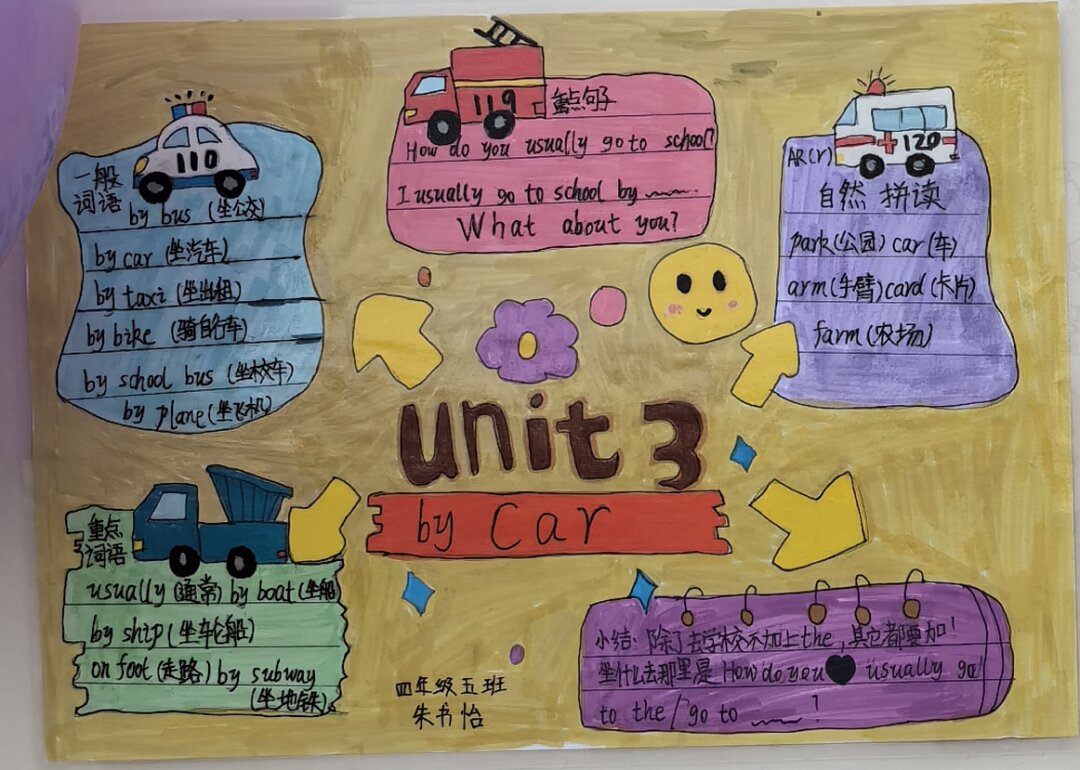 110
一般
词语
by bus (坐公交)
by car (坐汽车)
by taxi (坐出租)
by bike (骑自行车)
by school bus (坐校车)
by plane (坐飞机)
119
重点句子
How do you usually go to school?
I usually go to school by
What about you?
120
AR(r)
自然 拼读
park(公园) car(车)
arm(手臂) card(卡片)
farm(农场)
unit 3
by Car
重点
词语
usually (通常) by boat (坐船
by ship (坐轮船)
on foot (走路) by subway
(坐地铁)
小结: 除了去学校不加上the, 其它都要加!
坐什么去那里是 How do you usually go
to the / go to ?
四年级五班
朱书怡